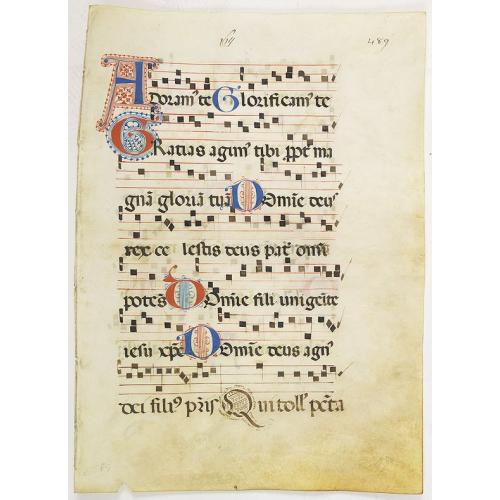 489
Adoram' te Glorificam' te
Gratias agim' tibi ꝓpt' ma
gnā gloriā tuā Domīe deus
rex celestis deus pat' omī
potes Domīe fili unigeīte
iesu xp̄e Domīe deus agn'
dei fili9 pr̄is Qui toll' pc̄ta